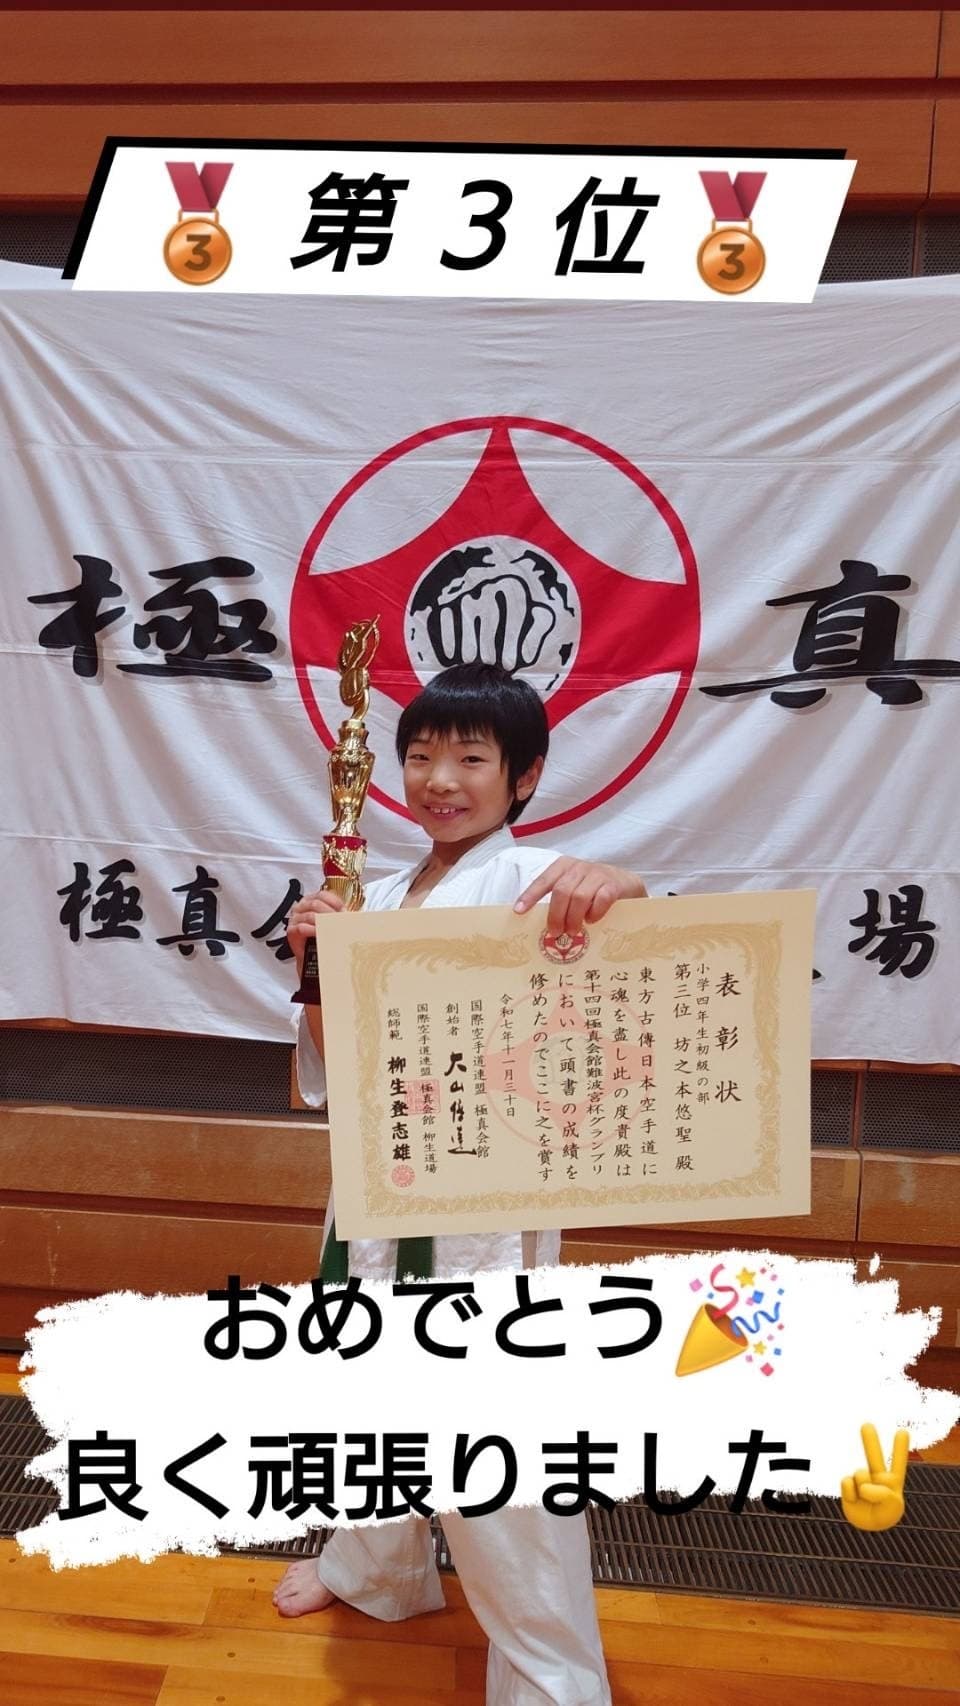 第3位
極真
極真会
場
表彰状
小学四年生初級の部
第三位 坊之本悠聖 殿
東方古傳日本空手道に
心魂を盡し此の度貴殿は
第十四回極真会館難波宮杯グランプリ
において頭書の成績を
修めたのでここに之を賞す
令和七年十一月三十日
国際空手道連盟 極真会館
創始者 大山倍達
国際空手道連盟 極真会館 柳生道場
総師範 柳生登志雄
おめでとう🎉
良く頑張りました✌